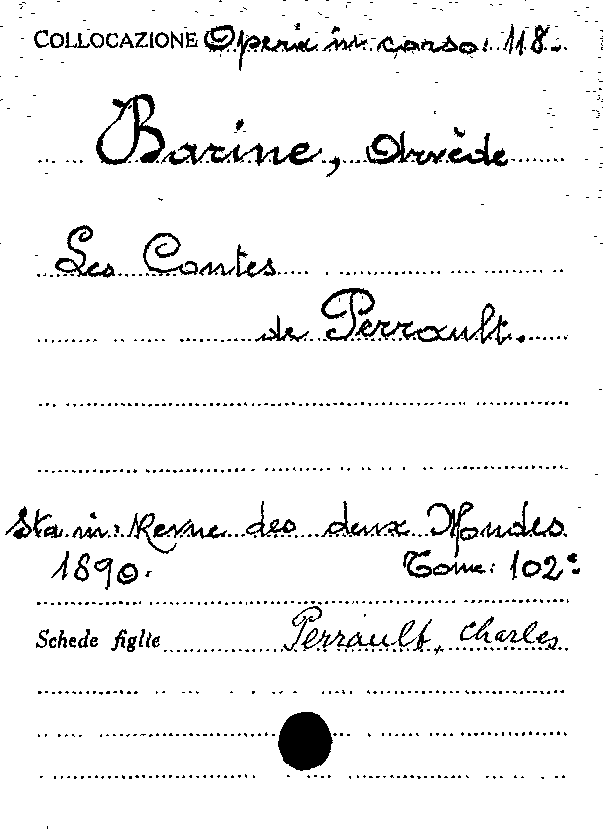 COLLOCAZIONE Opera in corso: 118.
Barine, Arvède
Les Contes
de Perrault.
Sta in: Revue des deux Mondes
1890. Tome: 102º
Schede figlie Perrault, Charles